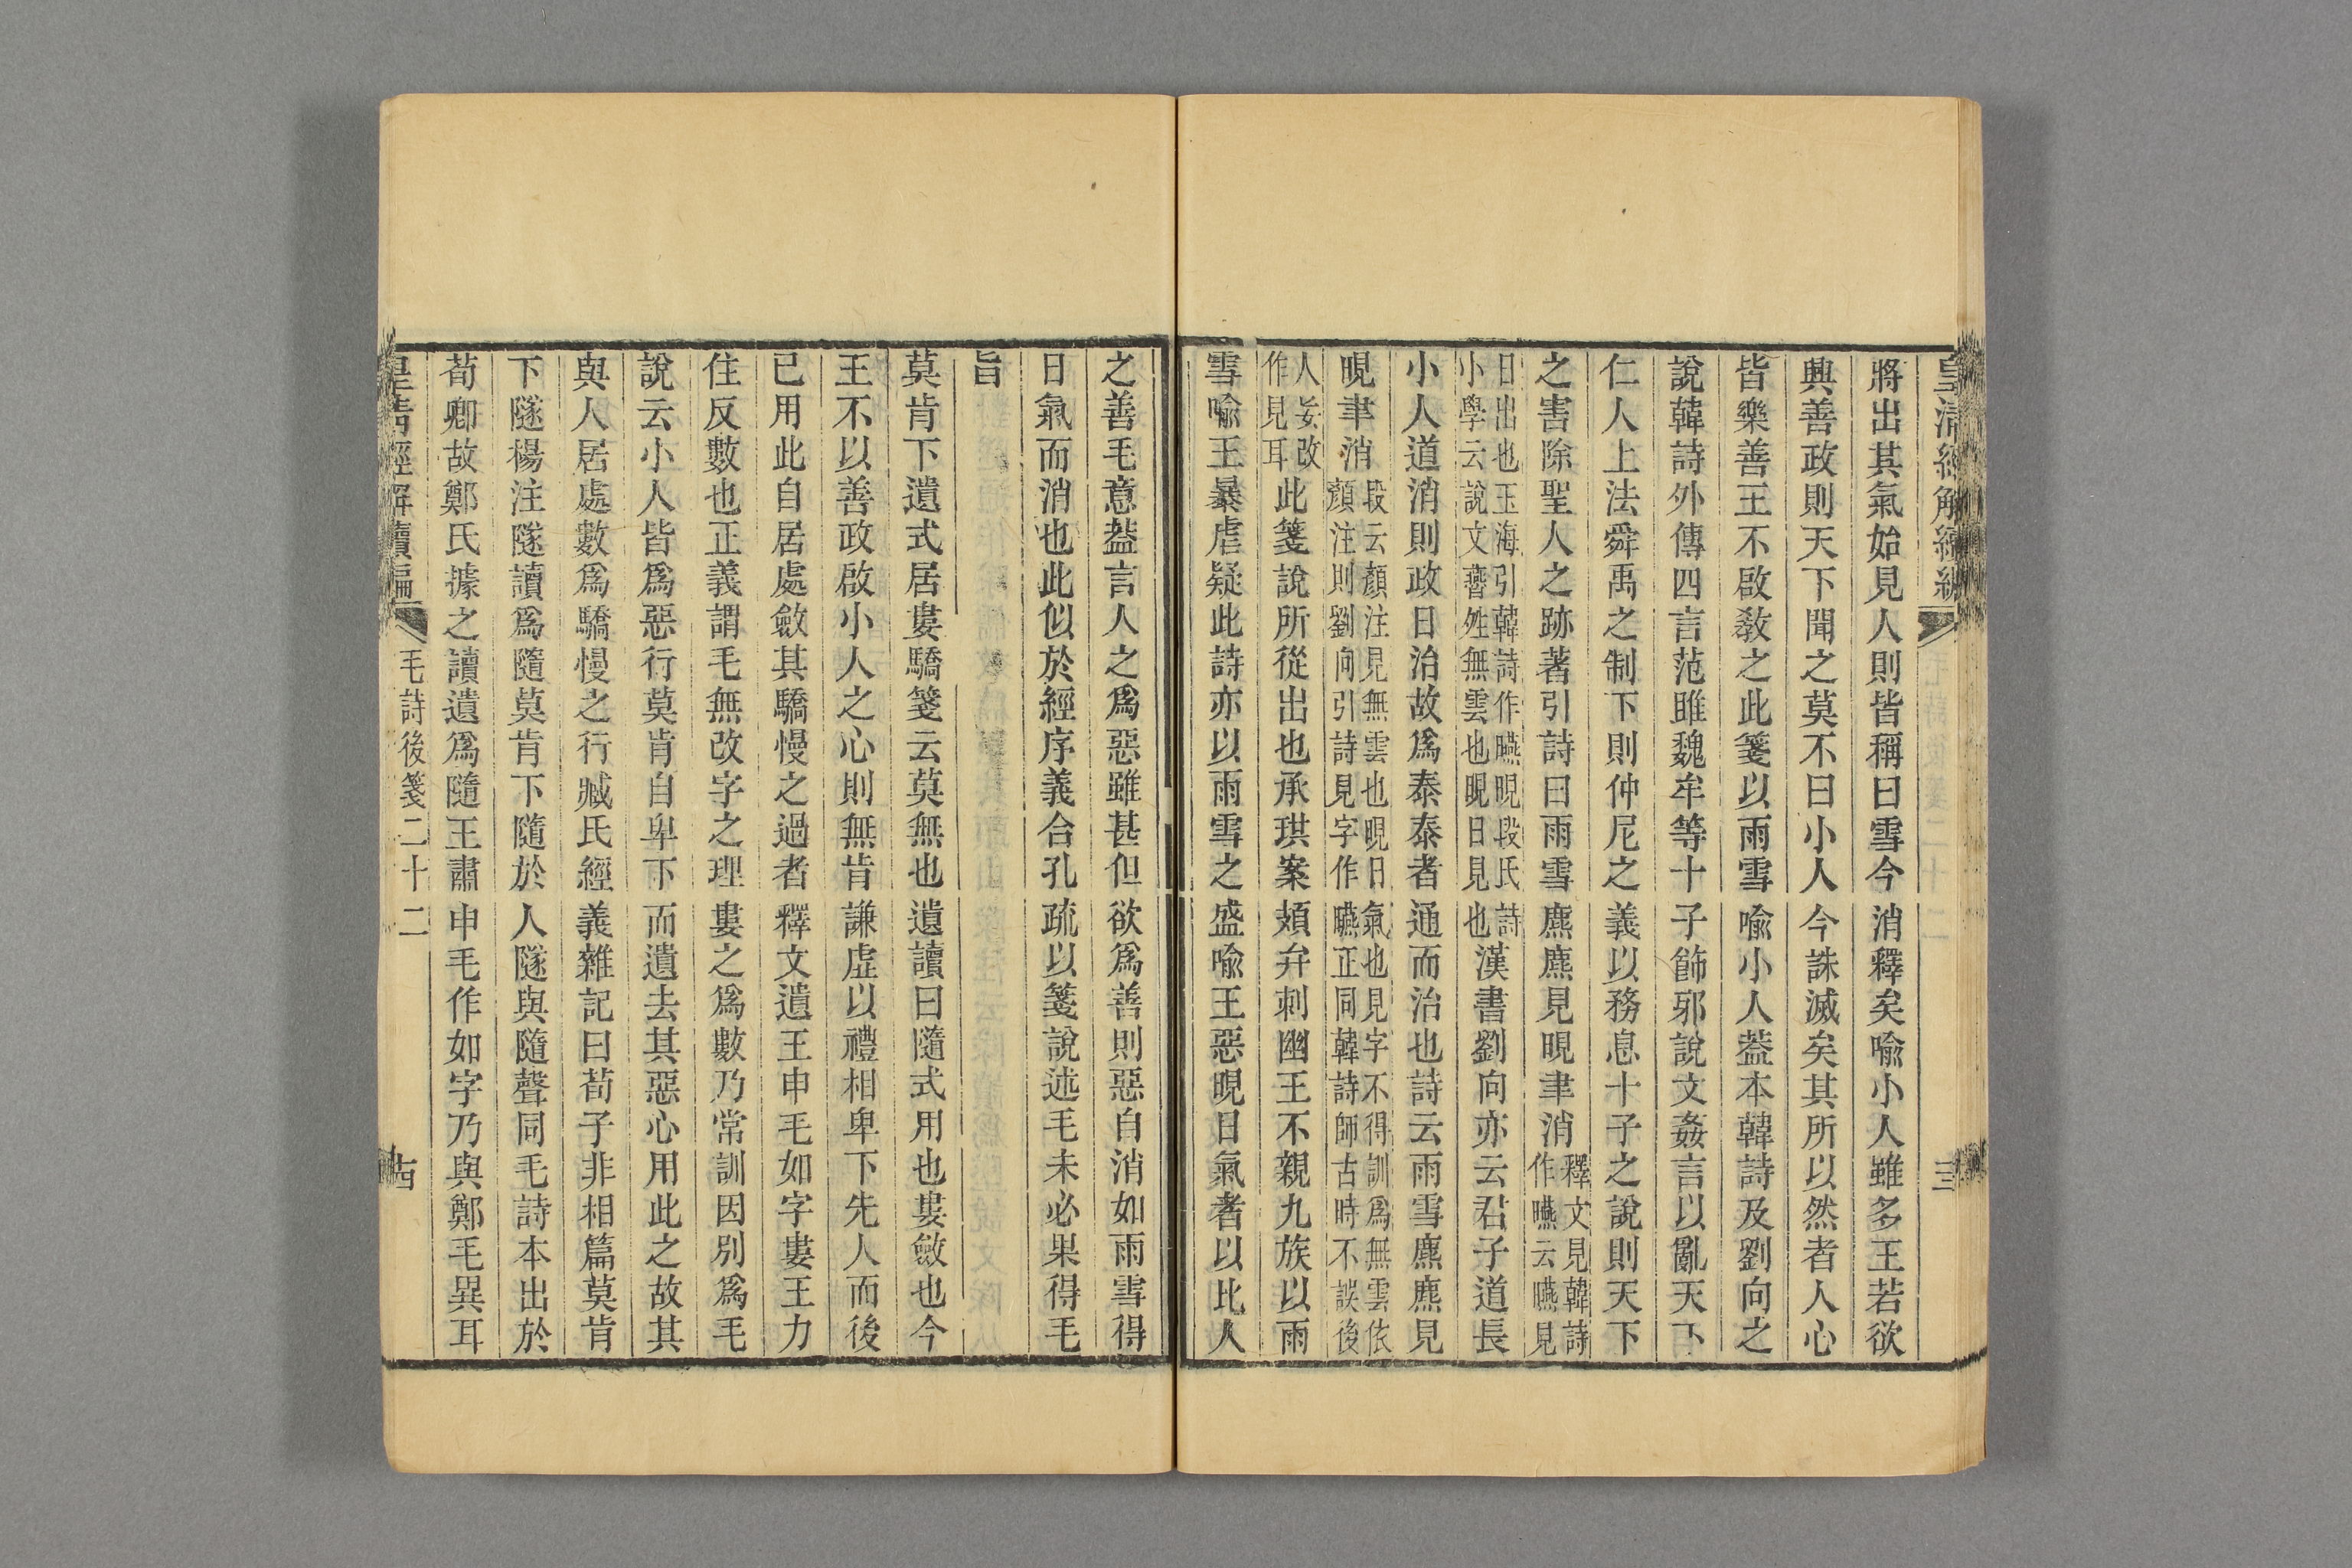 皇清經解續編
三
將出其氣始見人則皆稱曰雪今消釋矣喻小人雖多王若欲
興善政則天下聞之莫不曰小人今誅滅矣其所以然者人心
皆樂善王不啟敎之此箋以雨雪喻小人葢本韓詩及劉向之
說韓詩外傳四言范雎魏牟等十子飾邪說文姦言以亂天下
仁人上法舜禹之制下則仲尼之義以務息十子之說則天下
之害除聖人之跡著引詩曰雨雪麃麃見晛聿消釋文見韓詩作曣云曣見
日出也玉海引韓詩作曣晛段氏詩小學云說文䜭姓無雲也晛日見也漢書劉向亦云君子道長
小人道消則政日治故爲泰泰者通而治也詩云雨雪麃麃見
晛聿消段云顏注見無雲也晛日氣也見字不得訓爲無雲依顏注則劉向引詩見字作曣正同韓詩師古時不誤後
人妄改作見耳此箋說所從出也承珙案頍弁刺幽王不親九族以雨
雪喻王暴虐疑此詩亦以雨雪之盛喻王惡晛日氣者以比人
之善毛意葢言人之爲惡雖甚但欲爲善則惡自消如雨雪得
日氣而消也此似於經序義合孔疏以箋說述毛未必果得毛
旨
莫肯下遺式居婁驕箋云莫無也遺讀曰隨式用也婁斂也今
王不以善政啟小人之心則無肯謙虛以禮相卑下先人而後
已用此自居處斂其驕慢之過者釋文遺王申毛如字婁王力
住反數也正義謂毛無改字之理婁之爲數乃常訓因別爲毛
說云小人皆爲惡行莫肯自卑下而遺去其惡心用此之故其
與人居處數爲驕慢之行臧氏經義雜記曰荀子非相篇莫肯
下隧楊注隧讀爲隨莫肯下隨於人隧與隨聲同毛詩本出於
荀卿故鄭氏據之讀遺爲隨王肅申毛作如字乃與鄭毛異耳
皇淸經解續編
毛詩後箋二十二
古